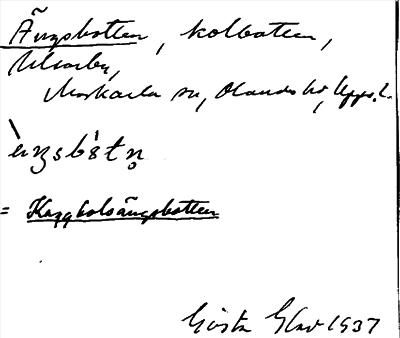 Ängsbotten, kolbotten,
Ulvarby,
Morkarla sn, Olands hd, Upps. l.
= Kaggbolsängsbotten
Gösta Glav 1937